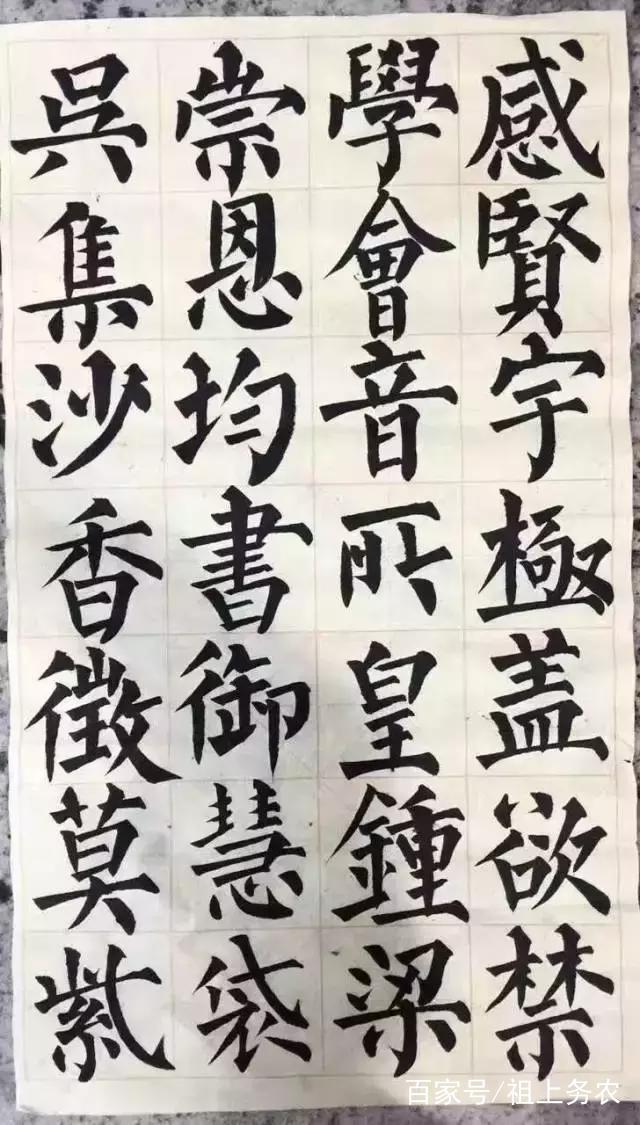 感賢宇極盖欲禁
學會音所皇鍾梁
崇恩均書御慧袋
吳集沙香徵莫紫
百家号/祖上务农